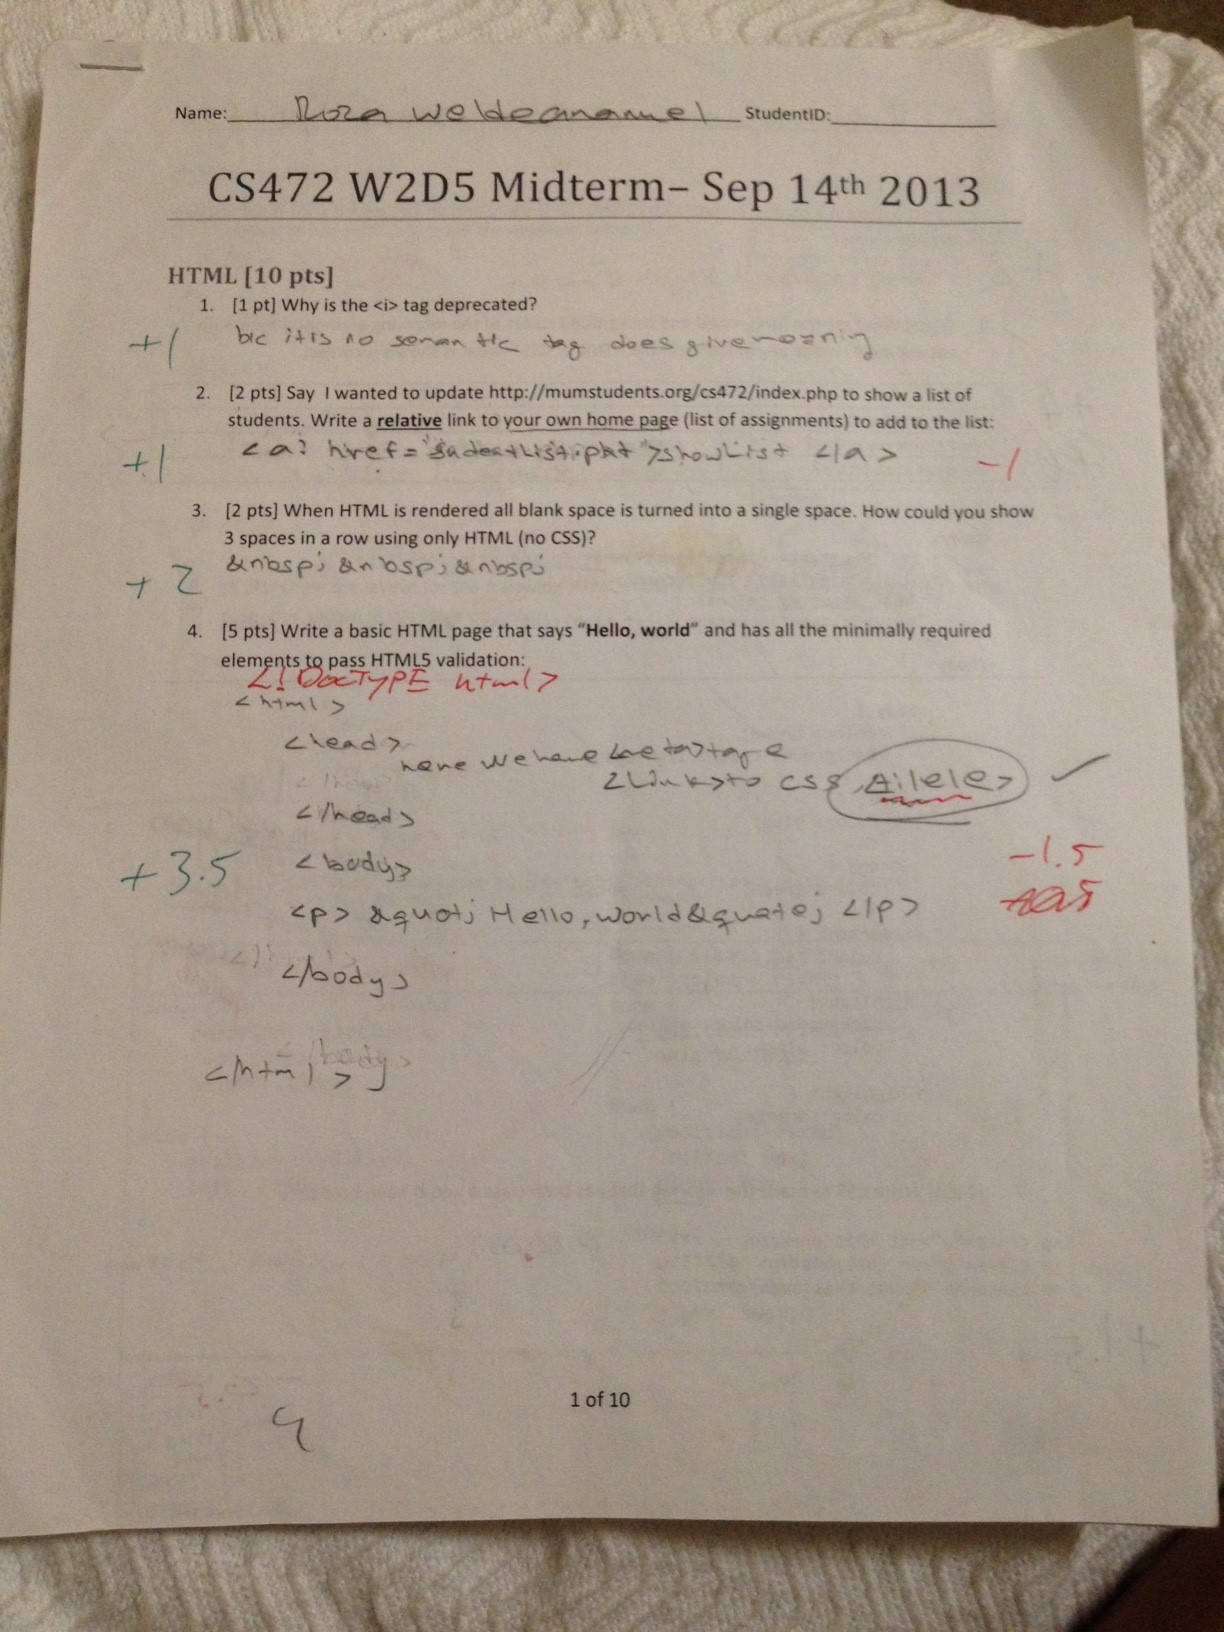 Name: Roza Weldeananuel StudentID:
CS472 W2D5 Midterm– Sep 14th 2013
HTML [10 pts]
1. [1 pt] Why is the <i> tag deprecated?
+1 b/c it is no semantic tag does give meaning
2. [2 pts] Say I wanted to update http://mumstudents.org/cs472/index.php to show a list of
students. Write a relative link to your own home page (list of assignments) to add to the list:
+1 <a href= >showList </a> -1
3. [2 pts] When HTML is rendered all blank space is turned into a single space. How could you show
3 spaces in a row using only HTML (no CSS)?
+2 &nbsp; &nbsp; &nbsp;
4. [5 pts] Write a basic HTML page that says “Hello, world” and has all the minimally required
elements to pass HTML5 validation:
<! DOCTYPE html>
<html>
<head>
here we have <meta> tag e
<link> to css
</head>
+3.5 <body> -1.5
<p> &quot; Hello, world&quote; </p>
</body>
</body>
</html>
1 of 10